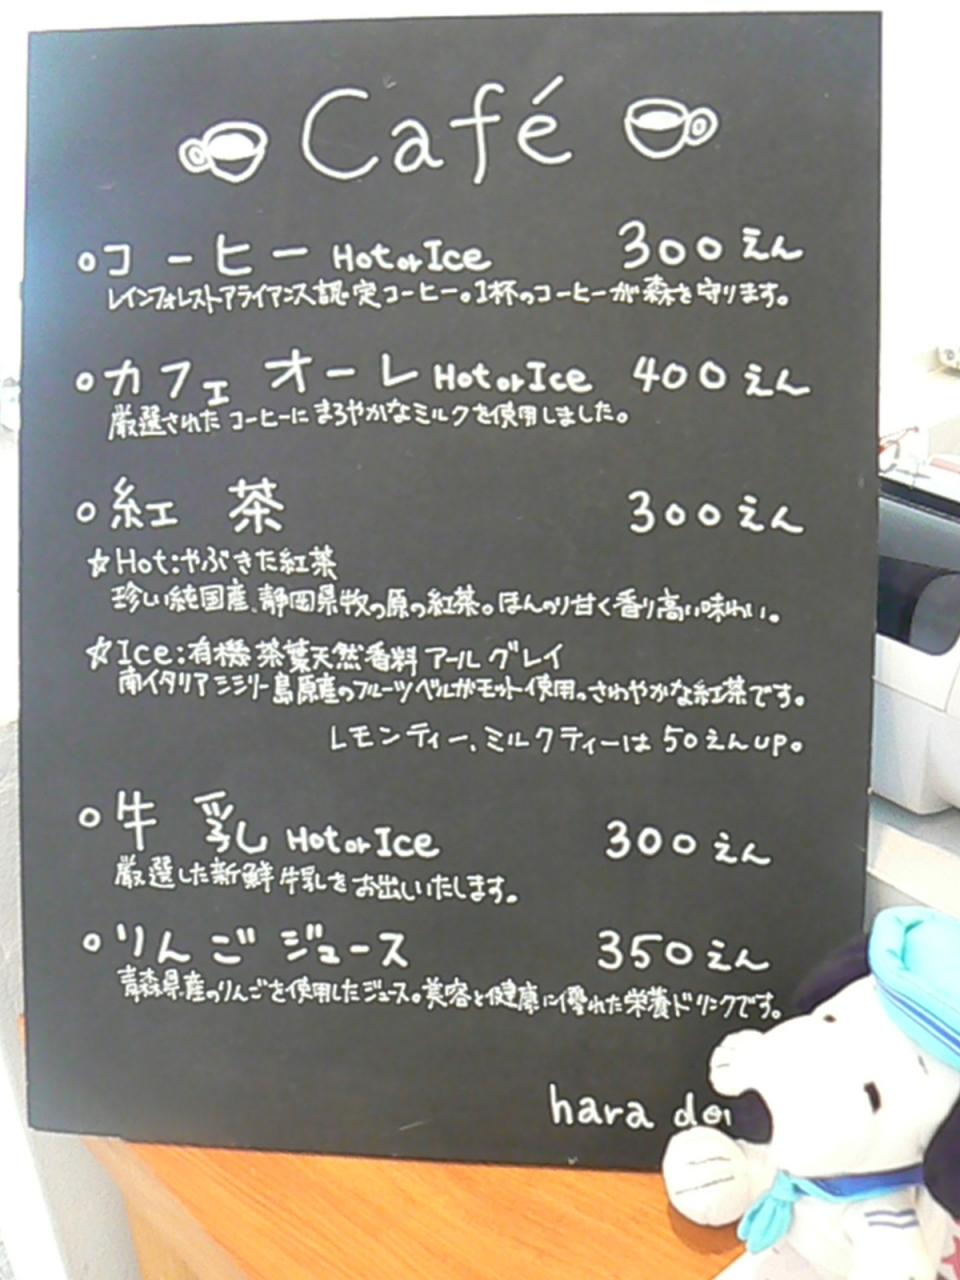 Café
○コーヒー Hot or Ice 300えん
レインフォレストアライアンス認定コーヒー。1杯のコーヒーが森を守ります。
○カフェ オーレ Hot or Ice 400えん
厳選された コーヒーに まろやかなミルクを使用しました。
○紅 茶 300えん
☆Hot:やぶきた紅茶
珍しい純国産、静岡県牧の原の紅茶。ほんのり甘く香り高い味わい。
☆Ice:有機茶葉天然香料 アールグレイ
南イタリアシシリー島原産のフルーツベルガモット使用。さわやかな紅茶です。
レモンティー、ミルクティーは 50えんup。
○牛 乳 Hot or Ice 300えん
厳選した新鮮牛乳をお出しいたします。
○りんご ジュース 350えん
青森県産のりんごを使用したジュース。美容と健康に優れた栄養ドリンクです。
hara